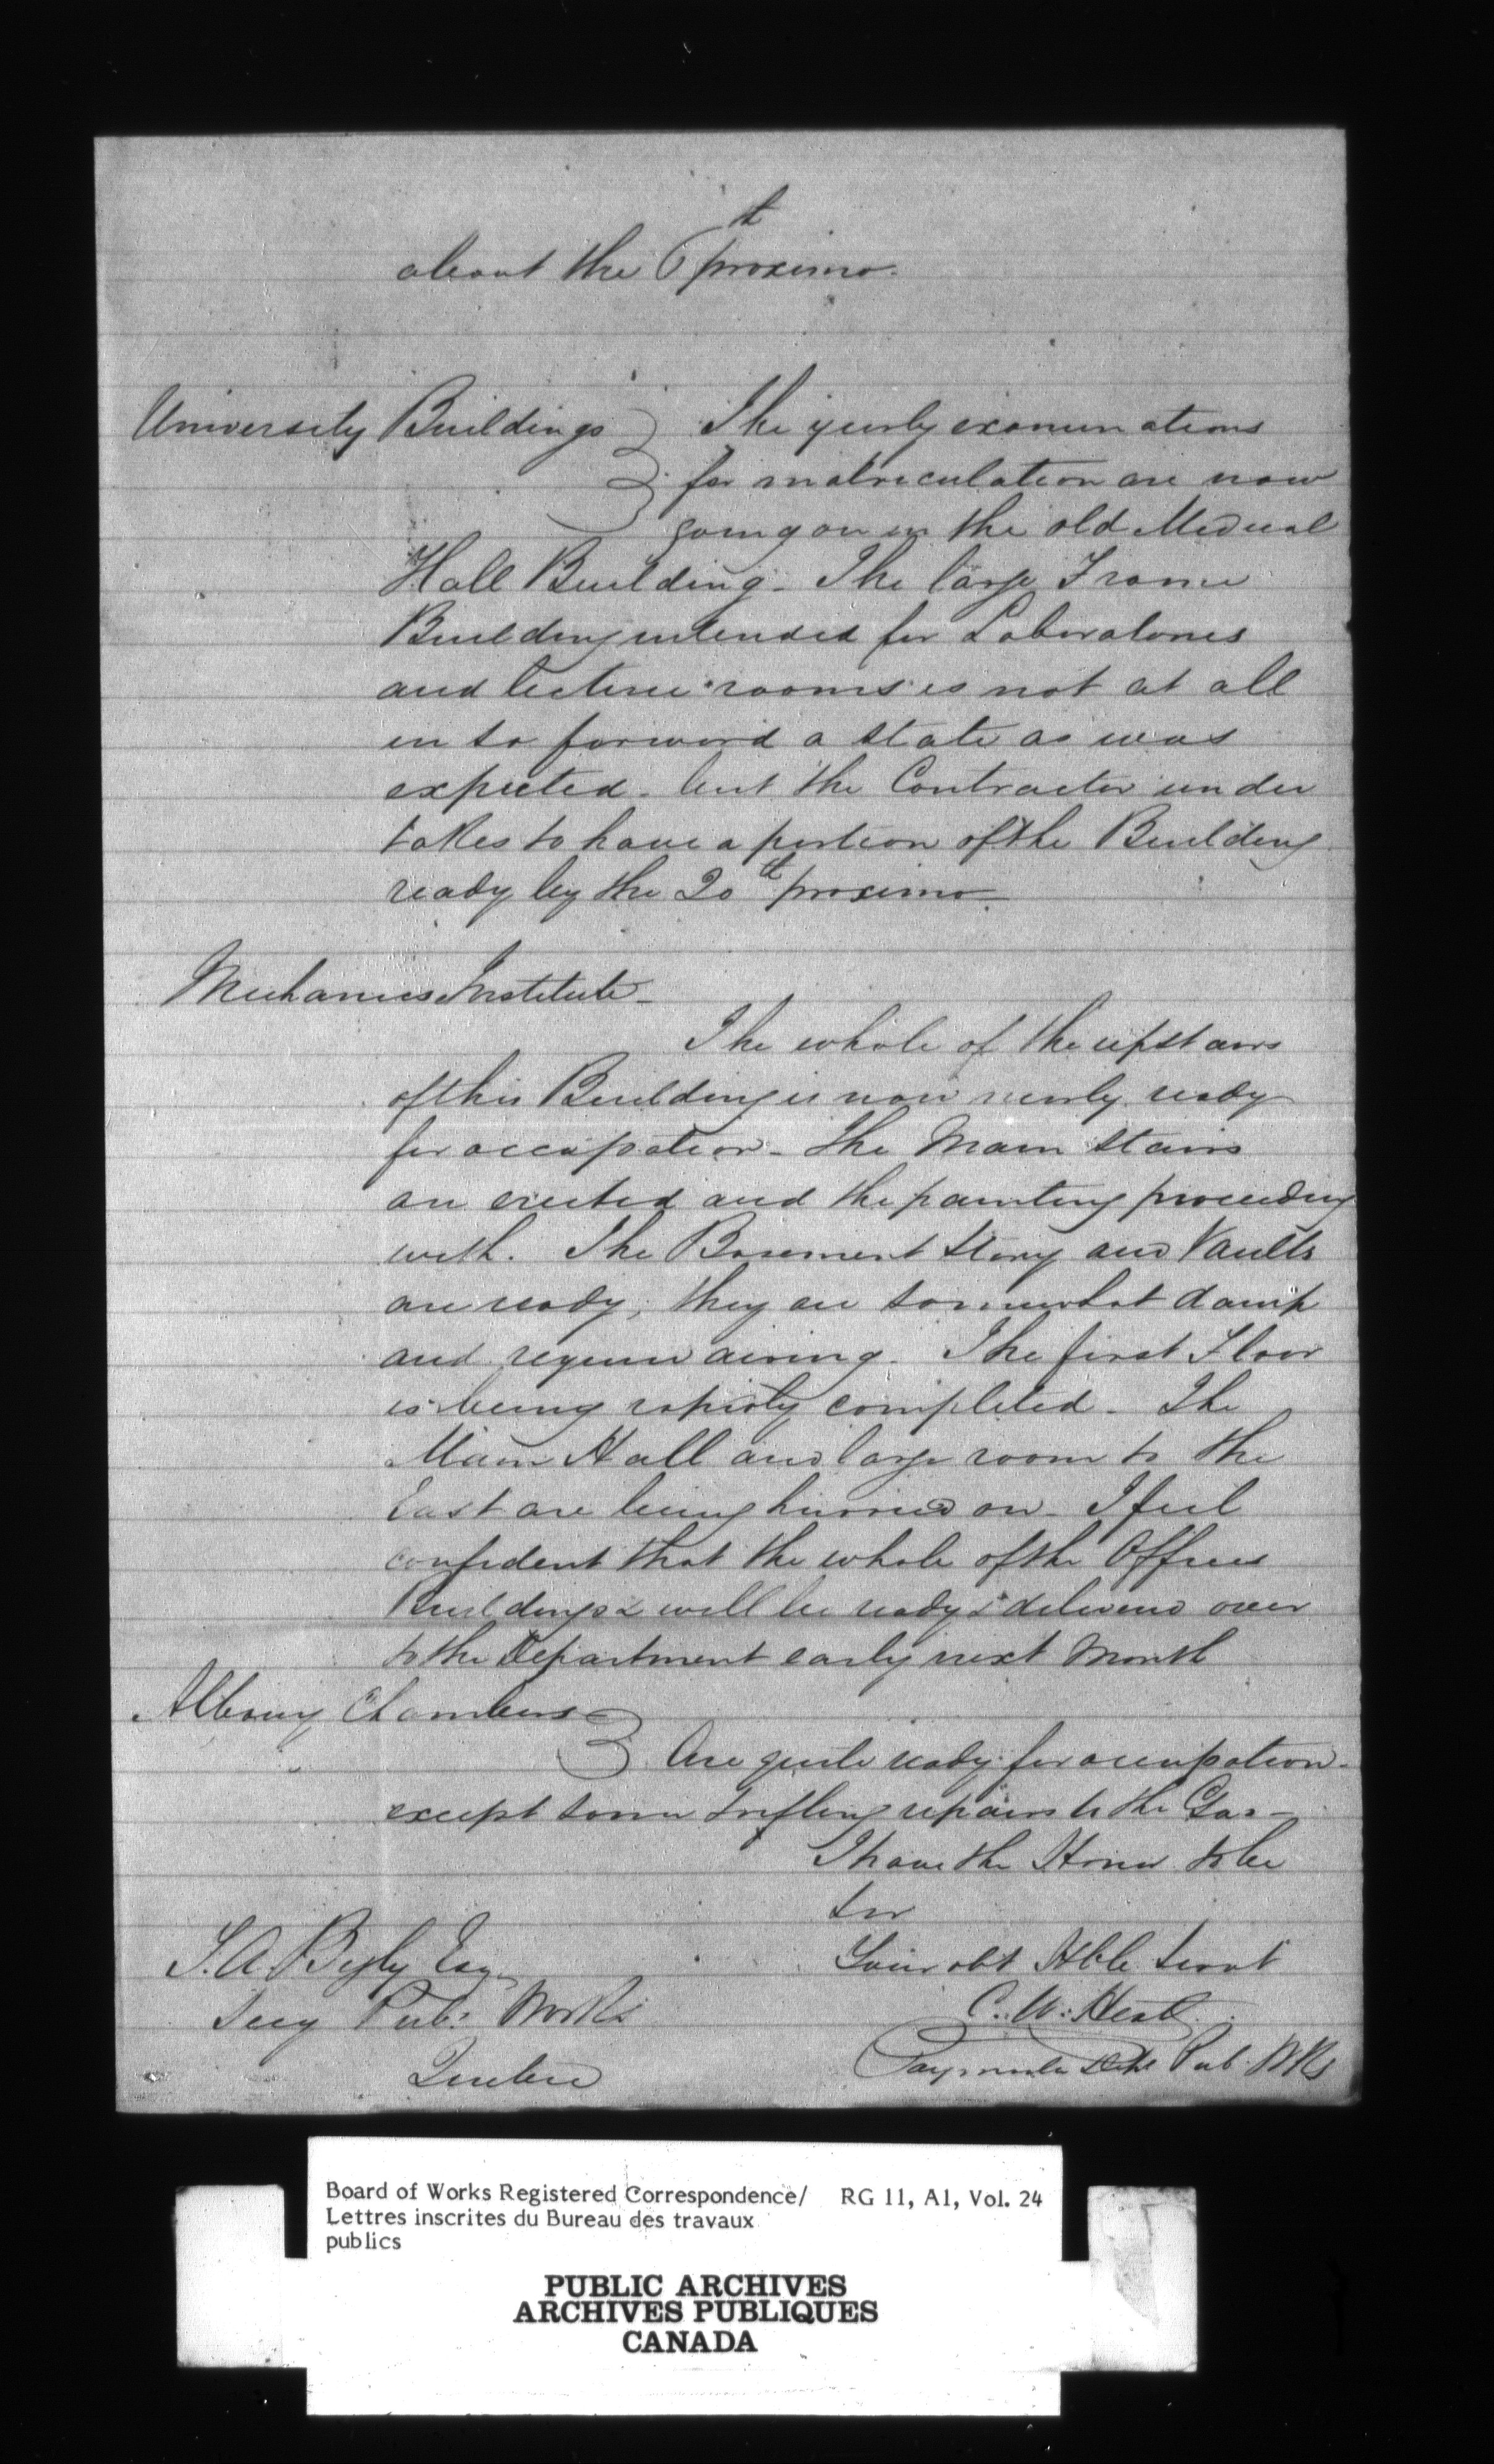 about the 6th proximo.
University Buildings } The yearly examinations
for matriculation are now
going on in the old Medical
Hall Building - The large Frame
Building intended for Laboratories
and lecture rooms is not at all
in so forward a state as was
expected - but the Contractor under
takes to have a portion of the Building
ready by the 20th proximo.
Mechanics Institute -
The whole of the upstairs
of this Building is now nearly ready
for occupation - the Main Stairs
are erected and the painting proceeding
with. The Basement Story and Vaults
are ready, they are somewhat damp
and require airing. The first Floor
is being rapidly completed - The
Main Hall and large room to the
East are being hurried on - I feel
confident that the whole of the Offices
Buildings & will be ready & delivered over
to the Department early next Month
Albany Chambers
} Are quite ready for occupation -
except some trifling repairs to the Gas -
I have the Honor to be
Sir
Your obt Hble Servt
T. A. Begly Esq
C. W. Heath
Secy Pub: Works
Paymaster Pub. Wks
Quebec
Board of Works Registered Correspondence/ RG 11, A1, Vol. 24
Lettres inscrites du Bureau des travaux
publics
PUBLIC ARCHIVES
ARCHIVES PUBLIQUES
CANADA